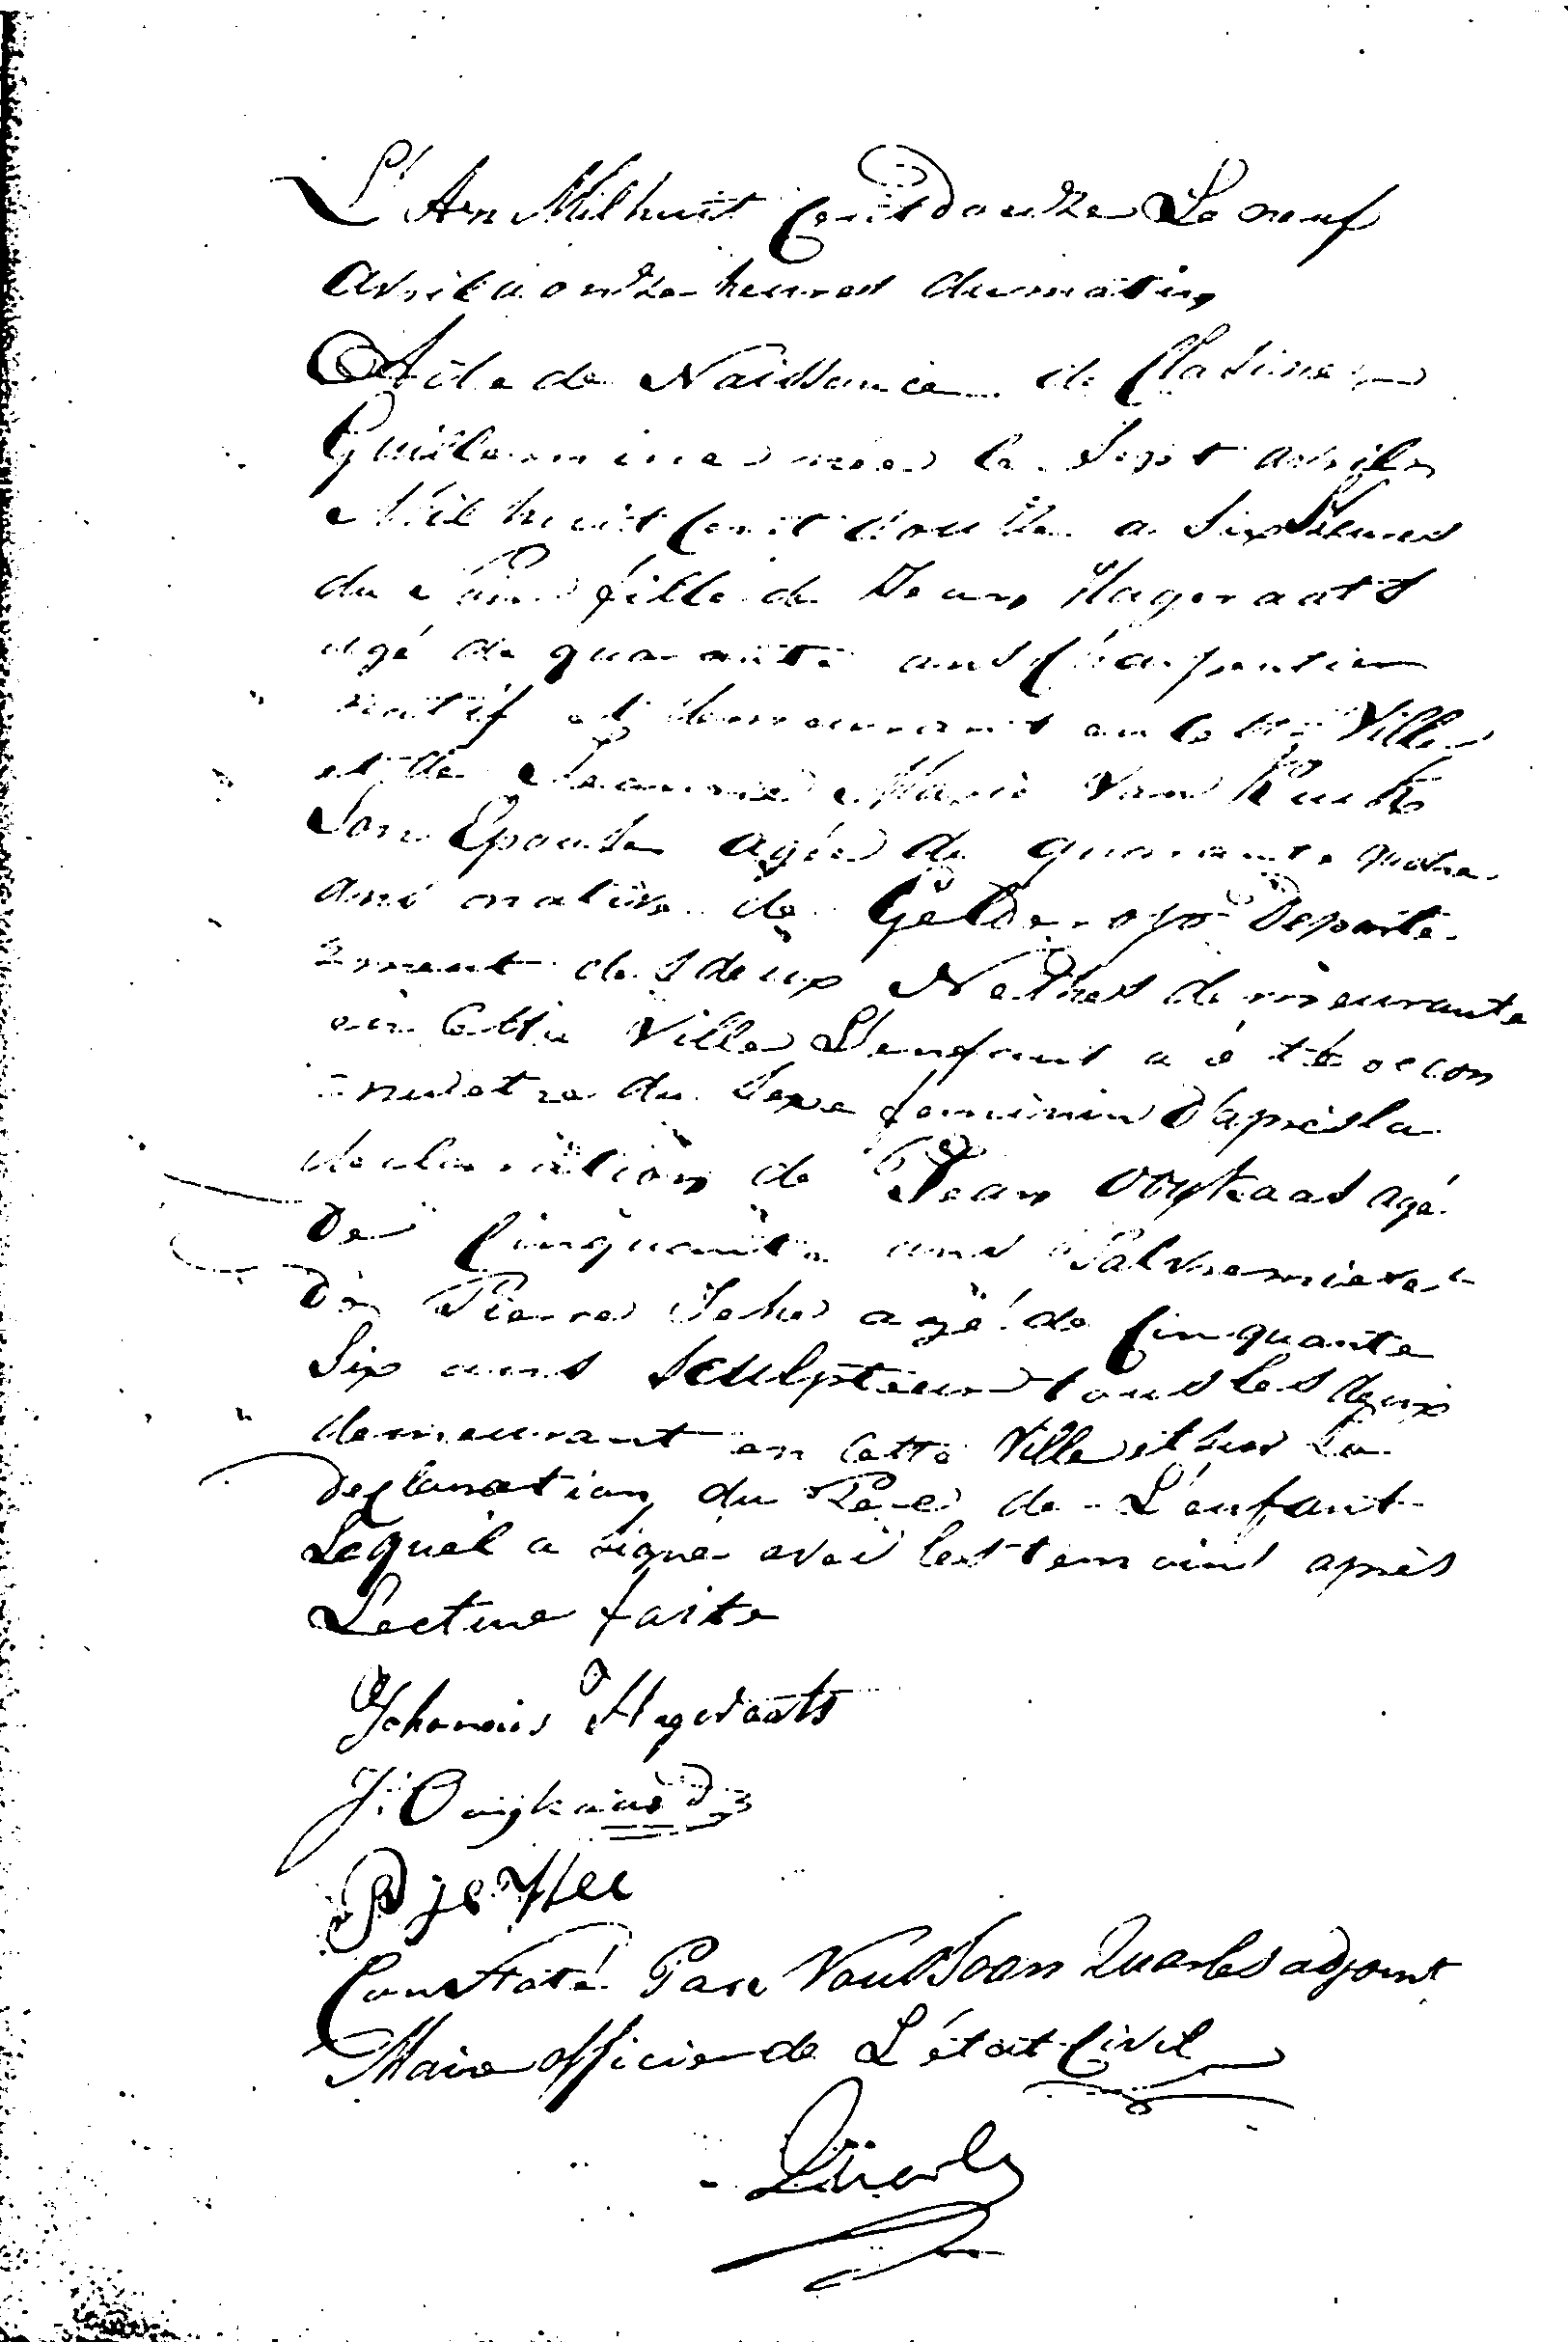 L'An Mil huit Cent douze Le neuf
Avril a onze heures du matin
Acte de Naissance de Clasine
Guillemine née le Sept avril
Mil huit Cent douze a Six Heures
du fille de Jean Hageraats
agé de quarante ans Charpentier
natif et demeurant en Cette Ville
et de Jeanne Marie Van
Son Epouse agée de quarante quatre
ans native de Gelderop Departe
=ment des deux Nethes demeurante
en Cette Ville L'enfant a é té recon
=nu etre du Sexe feminin D'après la
declaration de Jean agé
De Cinquante ans et
De Pierre agé de Cinquante
Six ans Sculpteur tous les deux
demeurant en Cette Ville et Sur La
Declaration du Pere de L'enfant
Lequel a signé avec les temoins après
Lecture faite
Johannis Hageraats
J:
P
Constaté Par Quarles adjoint
Maire officier de L'état Civil
Quarles